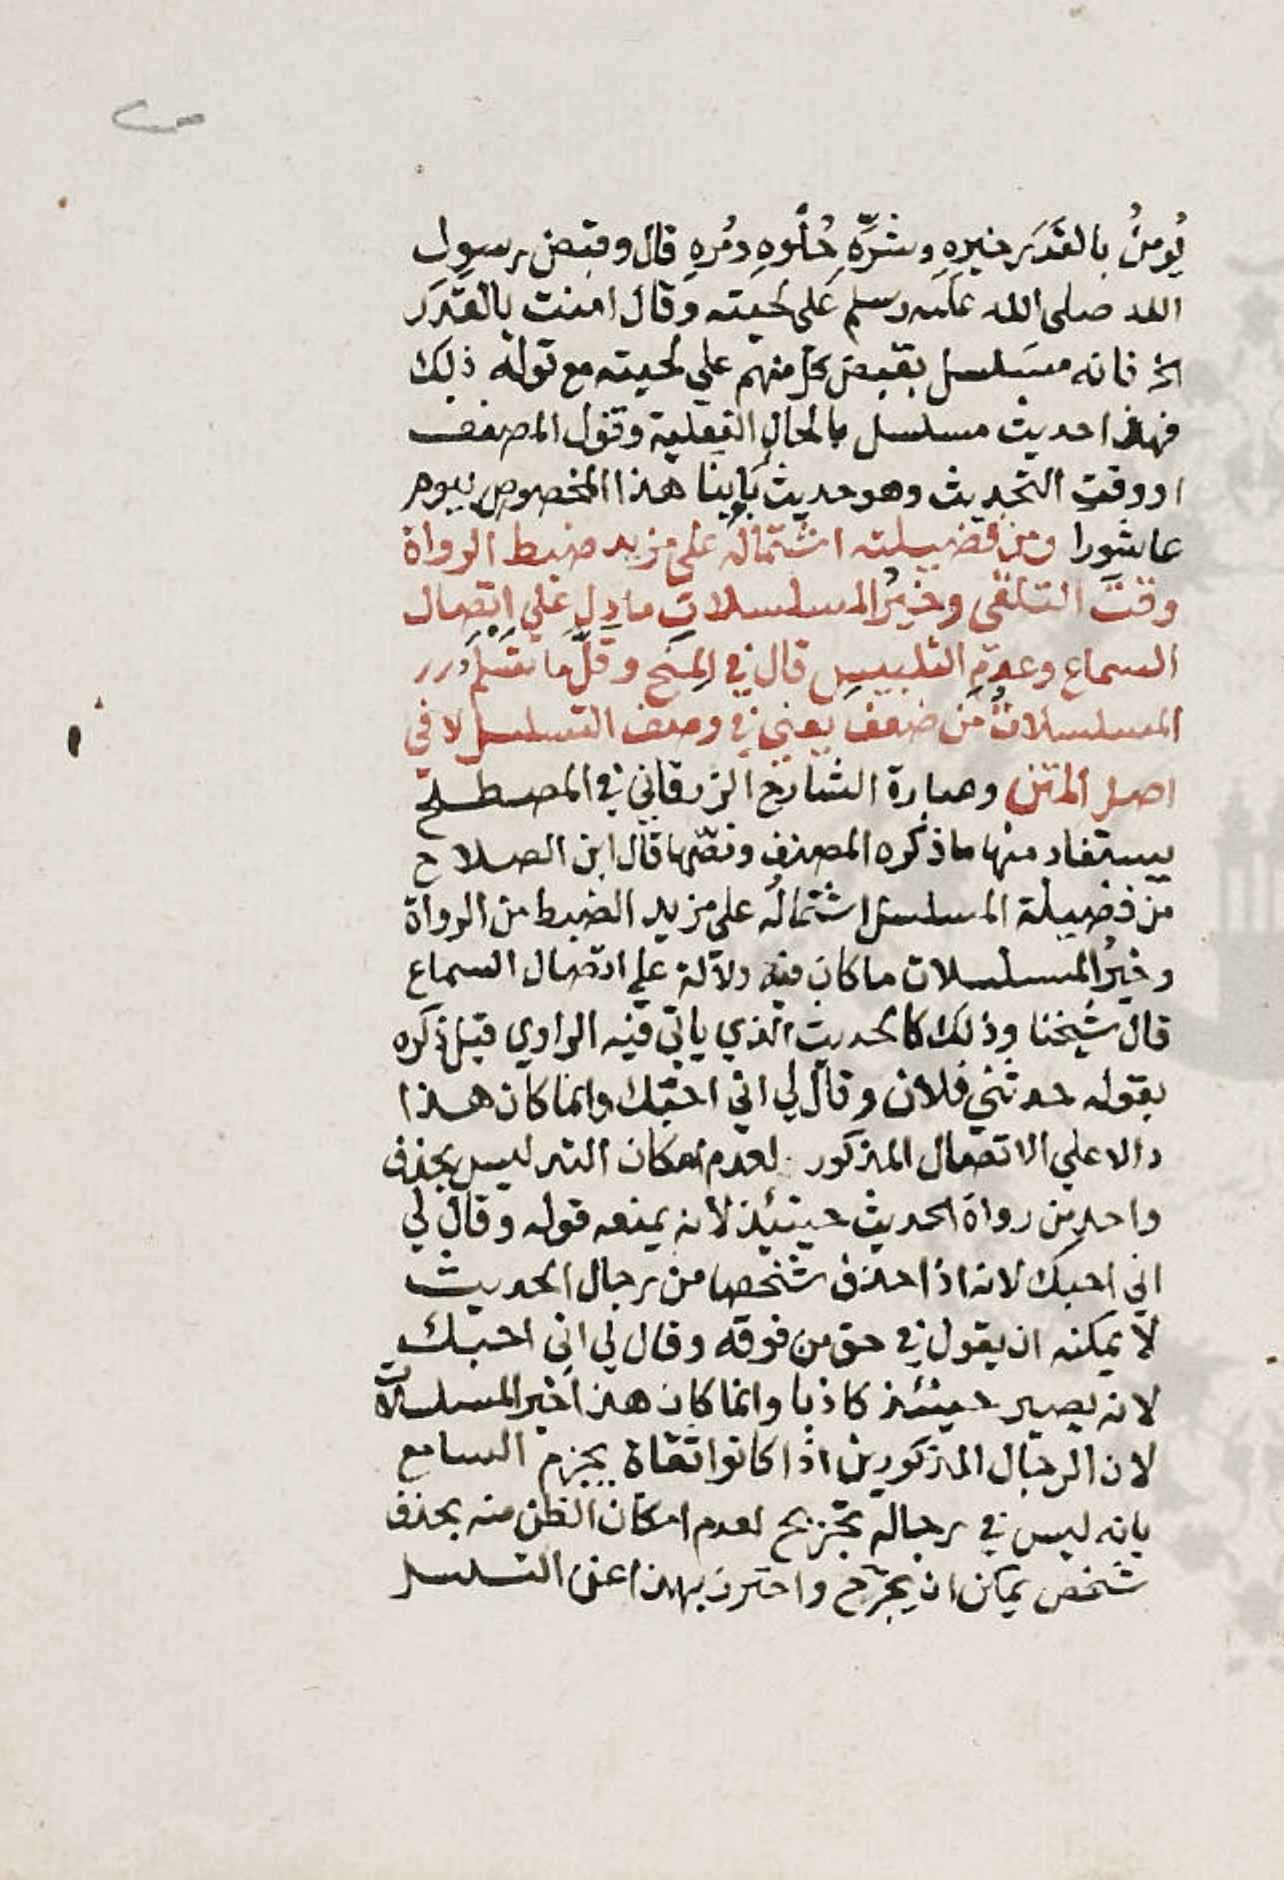 يُومنُ بالقَدَر خيرِهِ وشرِّهِ حُلْوِهِ ومُرِهِ قال وقبض رسول
الله صلى الله عليه وسلم على لحيته وقال امنت بالقدر
الخ فانه مسلسل بقبض كل منهم علي لحيته مع قوله ذلك
فهذا حديث مسلسل بالحال الفعلية وقول المصنف
او وقت التحديث وهو حديث بابنا هذا المخصوص بيوم
عاشورا ومن فضيلته اشتماله على مزيد ضبط الرواة
وقت التلقي وخيرُ المسلسلات ما دل علي اتصال
السماع وعدم التلبيس قال في المنح وقلَّما تسْلَم
المسلسلاتُ من ضعف يعني في وصف التسلسل لا في
اصل المتن وعبارة الشارح الزرقاني في المصطلح
يستفاد منها ما ذكره المصنف ونصّها قال ابن الصلاح
من فضيلة المسلسل اشتمالُه على مزيد الضبط من الرواة
وخيرُ المسلسلات ما كان فيه دلالة علي اتصال السماع
قال شيخنا وذلك كالحديث الذي ياتي فيه الراوي قبل ذكره
بقوله حدثني فلان وقال لي اني احبك وانما كان هذا
دالا علي الاتصال المذكور لعدم امكان التدليس بحذف
واحد من رواة الحديث حينئذ لانه يمنعه قوله وقال لي
اني احبك لانه اذا حذف شخصا من رجال الحديث
لا يمكنه ان يقول في حق من فوقه وقال لي اني احبك
لانه يصير حينئذ كاذبا وانما كان هذا خير المسلسلات
لان الرجال المذكورين اذا كانوا ثقاة يجزم السامع
بانه ليس في رجاله تجريح لعدم امكان الظن منه بحذف
شخص يمكن ان يجرّح واحترز بهذا عن التسلسل